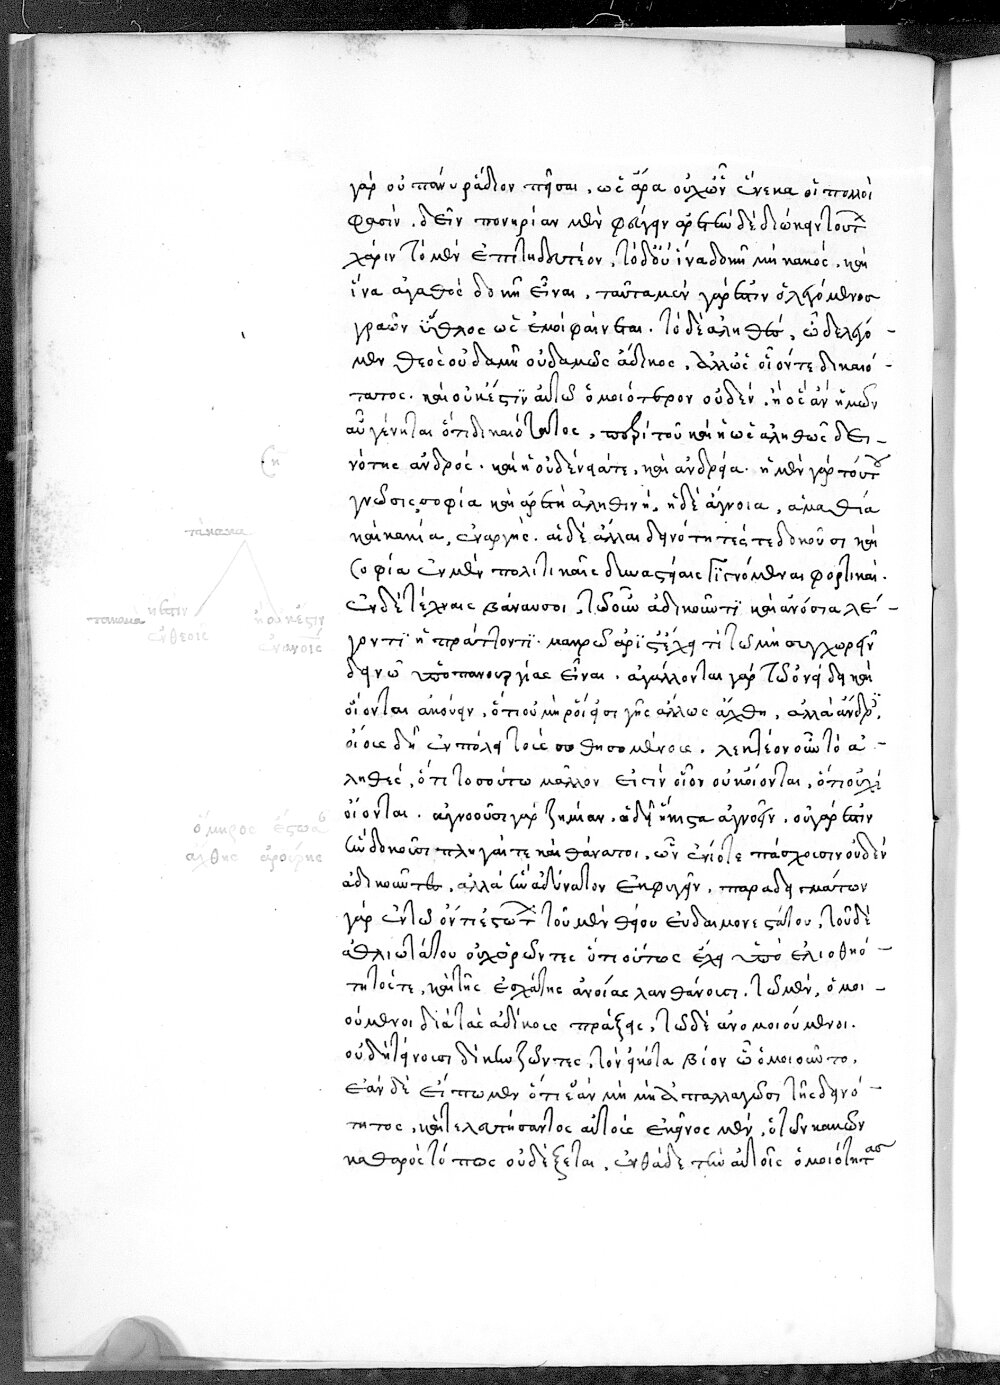 γὰρ οὐ πάνυ ῥάδιον πεῖσαι, ὡς ἄρα οὐχ ὧν ἕνεκα οἱ πολλοί
φασὶν, δεῖν πονηρίαν μὲν φεύγειν ἀρετὴν δὲ διώκειν τούτων
χάριν τὸ μὲν ἐπιτηδευτέον, τὸ δ' οὔ ἵνα δοκῇ μὴ κακὸς, καὶ
ἵνα ἀγαθὸς δοκῇ εἶναι, ταῦτα μὲν γάρ ἐστιν ὁ λεγόμενος
γραῶν ὕθλος ὡς ἐμοὶ φαίνεται. τὸ δὲ ἀληθὲς, ὧδε λέγο-
μεν θεὸς οὐδαμῇ οὐδαμῶς ἄδικος, ἀλλ' ὡς οἷόν τε δικαιό-
τατος. καὶ οὐκ ἔστιν αὐτῶ ὁμοιότερον οὐδὲν, ἢ ὃς ἂν ἡμῶν
αὖ γένηται ὅτι δικαιότατος, περὶ τοῦ καὶ ἡ ὡς ἀληθῶς δει-
νότης ἀνδρός. καὶ ἡ οὐδένεια τε, καὶ ἀνδρεία. ἡ μὲν γὰρ τούτου
γνῶσις σοφία καὶ ἀρετὴ ἀληθινὴ, ἡ δὲ ἄγνοια, ἀμαθία
καὶ κακία, ἐναργής. αἱ δὲ ἄλλαι δεινότητές τε δοκοῦσι καὶ
σοφία ἐν μὲν πολιτικαῖς δυναστείαις γιγνόμεναι φορτικαί.
ἐν δὲ τέχναις βάναυσοι, τῶ οὖν ἀδικοῦντι καὶ ἀνόσια λέ-
γοντι ἢ πράττοντι. μακρῶ ἄριστ' ἔχει τὸ μὴ συγχωρεῖν
δεινῶ ὑπὸ πανουργίας εἶναι. ἀγάλλονται γὰρ τῶ ὀνείδει καὶ
οἴονται ἀκούειν, ὅτι οὐ λῆροί εἰσι γῆς ἄλλως ἄχθη, ἀλλὰ ἄνδρες,
οἵους δεῖ ἐν πόλει τοὺς σωθησομένους. λεκτέον οὖν τὸ ἀ-
ληθὲς, ὅτι τοσούτω μᾶλλον εἰσὶν οἷον οὐκ οἴονται, ὅτι οὐχὶ
οἴονται. ἀγνοοῦσι γὰρ ζημίαν, ὃ δεῖ ἥκιστα ἀγνοεῖν. οὐ γάρ ἐστιν
ἣν δοκοῦσι πληγαί τε καὶ θάνατοι, ὧν ἐνίοτε πάσχουσιν οὐδὲν
ἀδικοῦντες, ἀλλὰ ἣν ἀδύνατον ἐκφυγεῖν. παραδειγμάτων
γὰρ ἐν τῶ ὄντι ἑστώτων τοῦ μὲν θείου εὐδαιμονεστάτου, τοῦ δὲ
ἀθλιωτάτου οὐχ ὁρῶντες ὅτι οὕτως ἔχει ὑπὸ ἠλιθιό-
τητός τε, καὶ τῆς ἐσχάτης ἀνοίας λανθάνουσι, τῶ μὲν, ὁμοι-
ούμενοι διὰ τὰς ἀδίκους πράξεις, τῶ δὲ ἀνομοιούμενοι.
οὗ δὴ τίνουσι δίκην ζῶντες, τὸν εἰκότα βίον ὧ ὁμοιοῦνται.
ἐὰν δὲ εἴπωμεν ὅτι ἐὰν μὴ ἀπαλλαγῶσι τῆς δεινό-
τητος, καὶ τελευτήσαντας αὐτοὺς ἐκεῖνος μὲν, ὁ τῶν κακῶν
καθαρὸς τόπος οὐ δέξεται, ἐνθάδε τὴν αὐτοῖς ὁμοιότητα
τὰ κακα
τὰ κακὰ
ἢ ἔστιν
ἐν θεοῖς
ἢ οὐκ ἔστιν
ὅμηρος
ἄχθης ἀρούρης